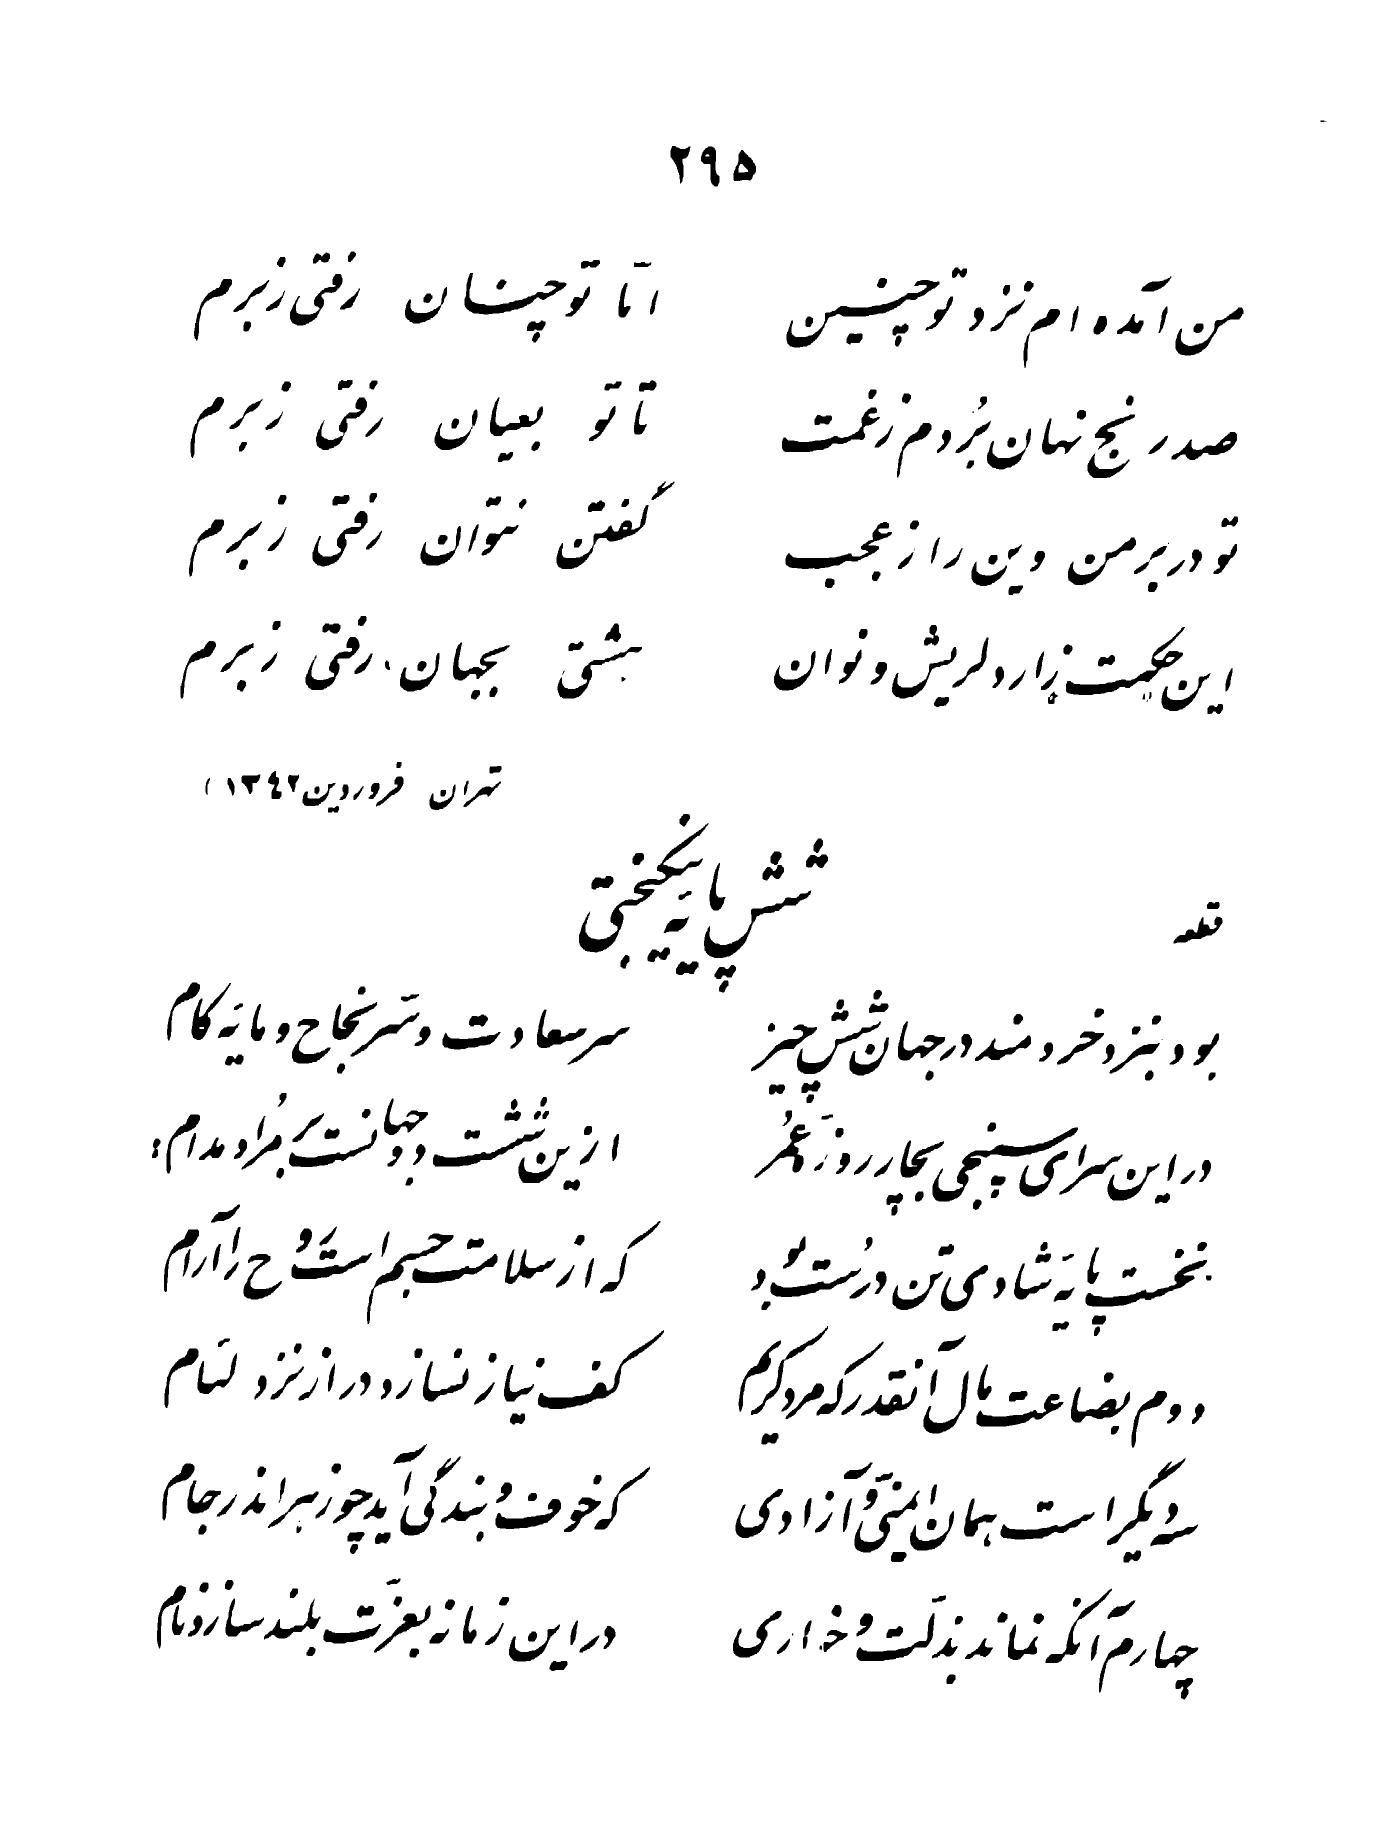 ۲۹۵
من آمده ام نزد تو چنین اما تو چنان رفتی ز برم
صد رنج نهان بُردم ز غمت تا تو بعیان رفتی ز برم
تو در بر من وین راز عجب گفتن نتوان رفتی ز برم
این حکمت زار دلریش و نوان هشتی بجهان، رفتی ز برم
تهران فروردین ۱۳۴۲)
شش پایه نیکبختی
قطعه
بود بنزد خردمند در جهان شش چیز سر سعادت و سر نجاح و مایه کام
در این سرای سپنجی بچار روز عُمر ازین شش است دو جهانت بر مُراد مدام:
نخست پایه شادی تن درُست بُود که از سلامت جسم است روح را آرام
دوم بضاعت مال آنقدر که مرد کریم کف نیاز نسازد دراز نزد لئام
سه دیگر است همان ایمنی و آزادی که خوف و بندگی آید چو زهر اندر جام
چهارم آنکه نماند بذلت و خواری در این زمانه بعزت بلند سازد نام